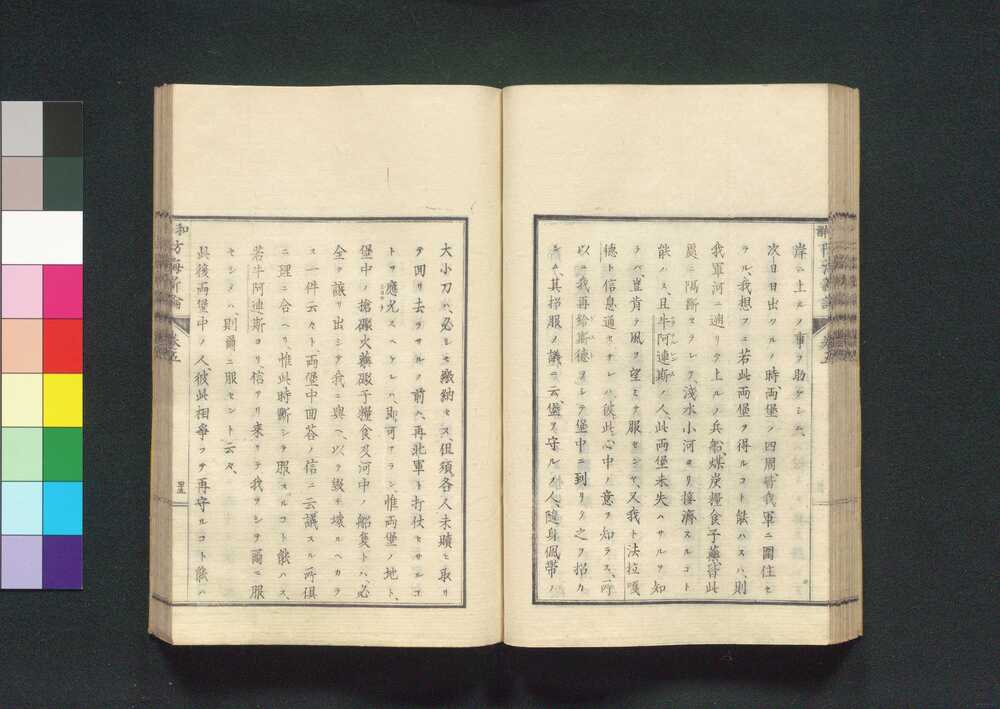 岸ニ上ルノ事ヲ助ケシム、
次日日出クルノ時、両堡ノ四周皆我軍ニ圍住セ
ラル、我想フニ若此両堡ヲ得ルコト能ハスハ、則
我軍河ニ遡リテ上ルノ兵船、煤炭糧食子藥皆此
處ニ隔斷セラレテ、浅水小河ヨリ接濟スルコト
能ハス、且牛阿連斯ノ人、此両堡未失ハサルヲ知
ラハ、豈肯テ風ヲ望ミテ服センヤ、又我ト法拉嘎
德ト信息通セサレハ、彼此心中ノ意ヲ知ラス、所
以ニ我再給斯德ヲシテ堡中ニ到リテ之ヲ招カ
シム、其招服ノ議ニ云、堡ヲ守ルノ人、隨身佩帶ノ
大小刀ハ、必シモ繳納セス、但須各人未贖ヒ取リ
テ囘リ去ラサルノ前ハ、再北軍ト打仗セサルコ
トヲ應允スヘケレハ、即可ナラン、惟両堡ノ地ト、
堡中ノ槍礮火藥礮子糧食及河中ノ船隻トハ、必
全ヲ讓リ出シテ我ニ與ヘ、以テ毀チ壊ルヘカラ
ス一件云々ト、両堡中囘荅ノ信ニ云、議スル所俱
ニ理ニ合ヘリ、惟此時斷シテ服スルコト能ハス、
若牛阿連斯ヨリ、信アリ来リテ、我ヲシテ爾ニ服
セシメハ、則爾ニ服セント云々、
此後両堡中ノ人、彼此相爭フテ再守ルコト能ハ
和方海防新論
卷五